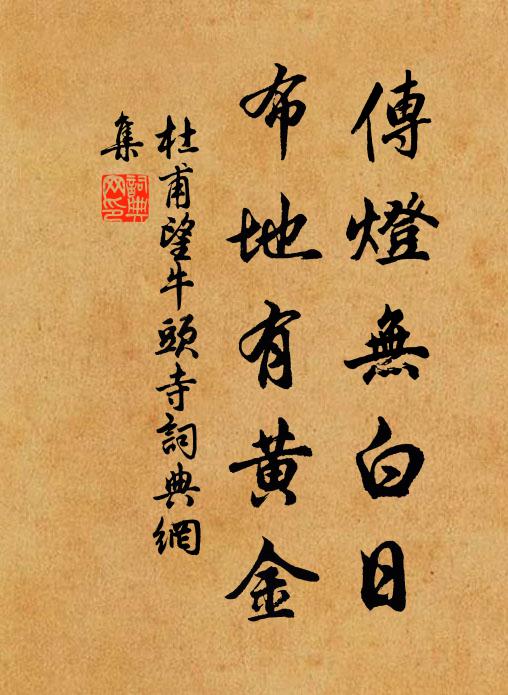 傳燈無白日
布地有黄金
杜甫望牛頭寺詞典網
集
詞典
网印